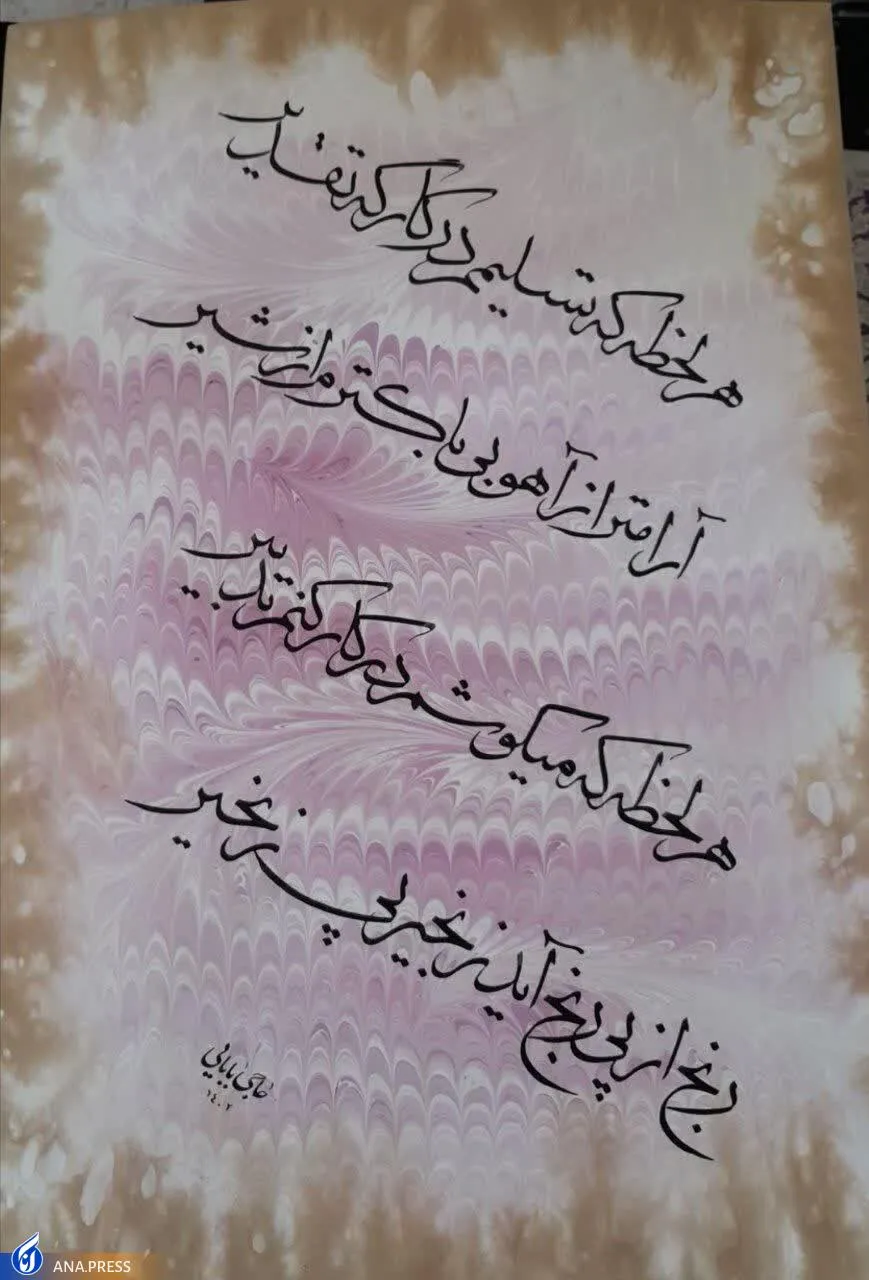 هر لحظه که تسلیمم در کارگه تقدیر
آرامتر از آهو بی باکترم از شیر
هر لحظه که میکوشم در کار کنم تدبیر
رنج از پی رنج آید زنجیر پی زنجیر
حاجی بابایی
۱۴۰۲
ANA.PRESS